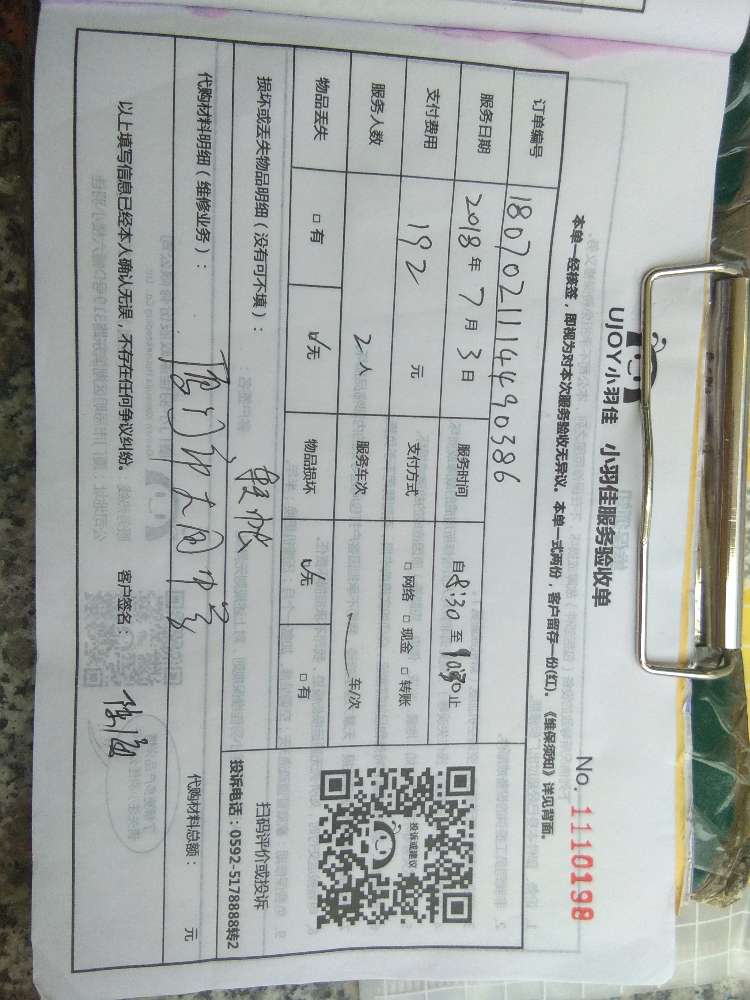 UJOY小羽佳 小羽佳服务验收单
No. 1110198
本单一经核签，即视为对本次服务验收无异议。本单一式两份，客户留存一份(红)。《维保须知》详见背面。
订单编号 1807021114490386
服务日期 2018年7月3日 服务时间 自8:30至9:30止
支付费用 192 元 支付方式 □网络 □现金 □转账
服务人数 2人 服务车次 车/次
物品丢失 □有 ☑无 物品损坏 ☑无 □有
投诉或建议
扫码评价或投诉
投诉电话：0592-5178888转2
损坏或丢失物品明细（没有可不填）：
代购材料明细（维修业务）： 代购材料总额： 元
厦门 大同中学
以上填写信息已经本人确认无误，不存在任何争议纠纷。 客户签名：